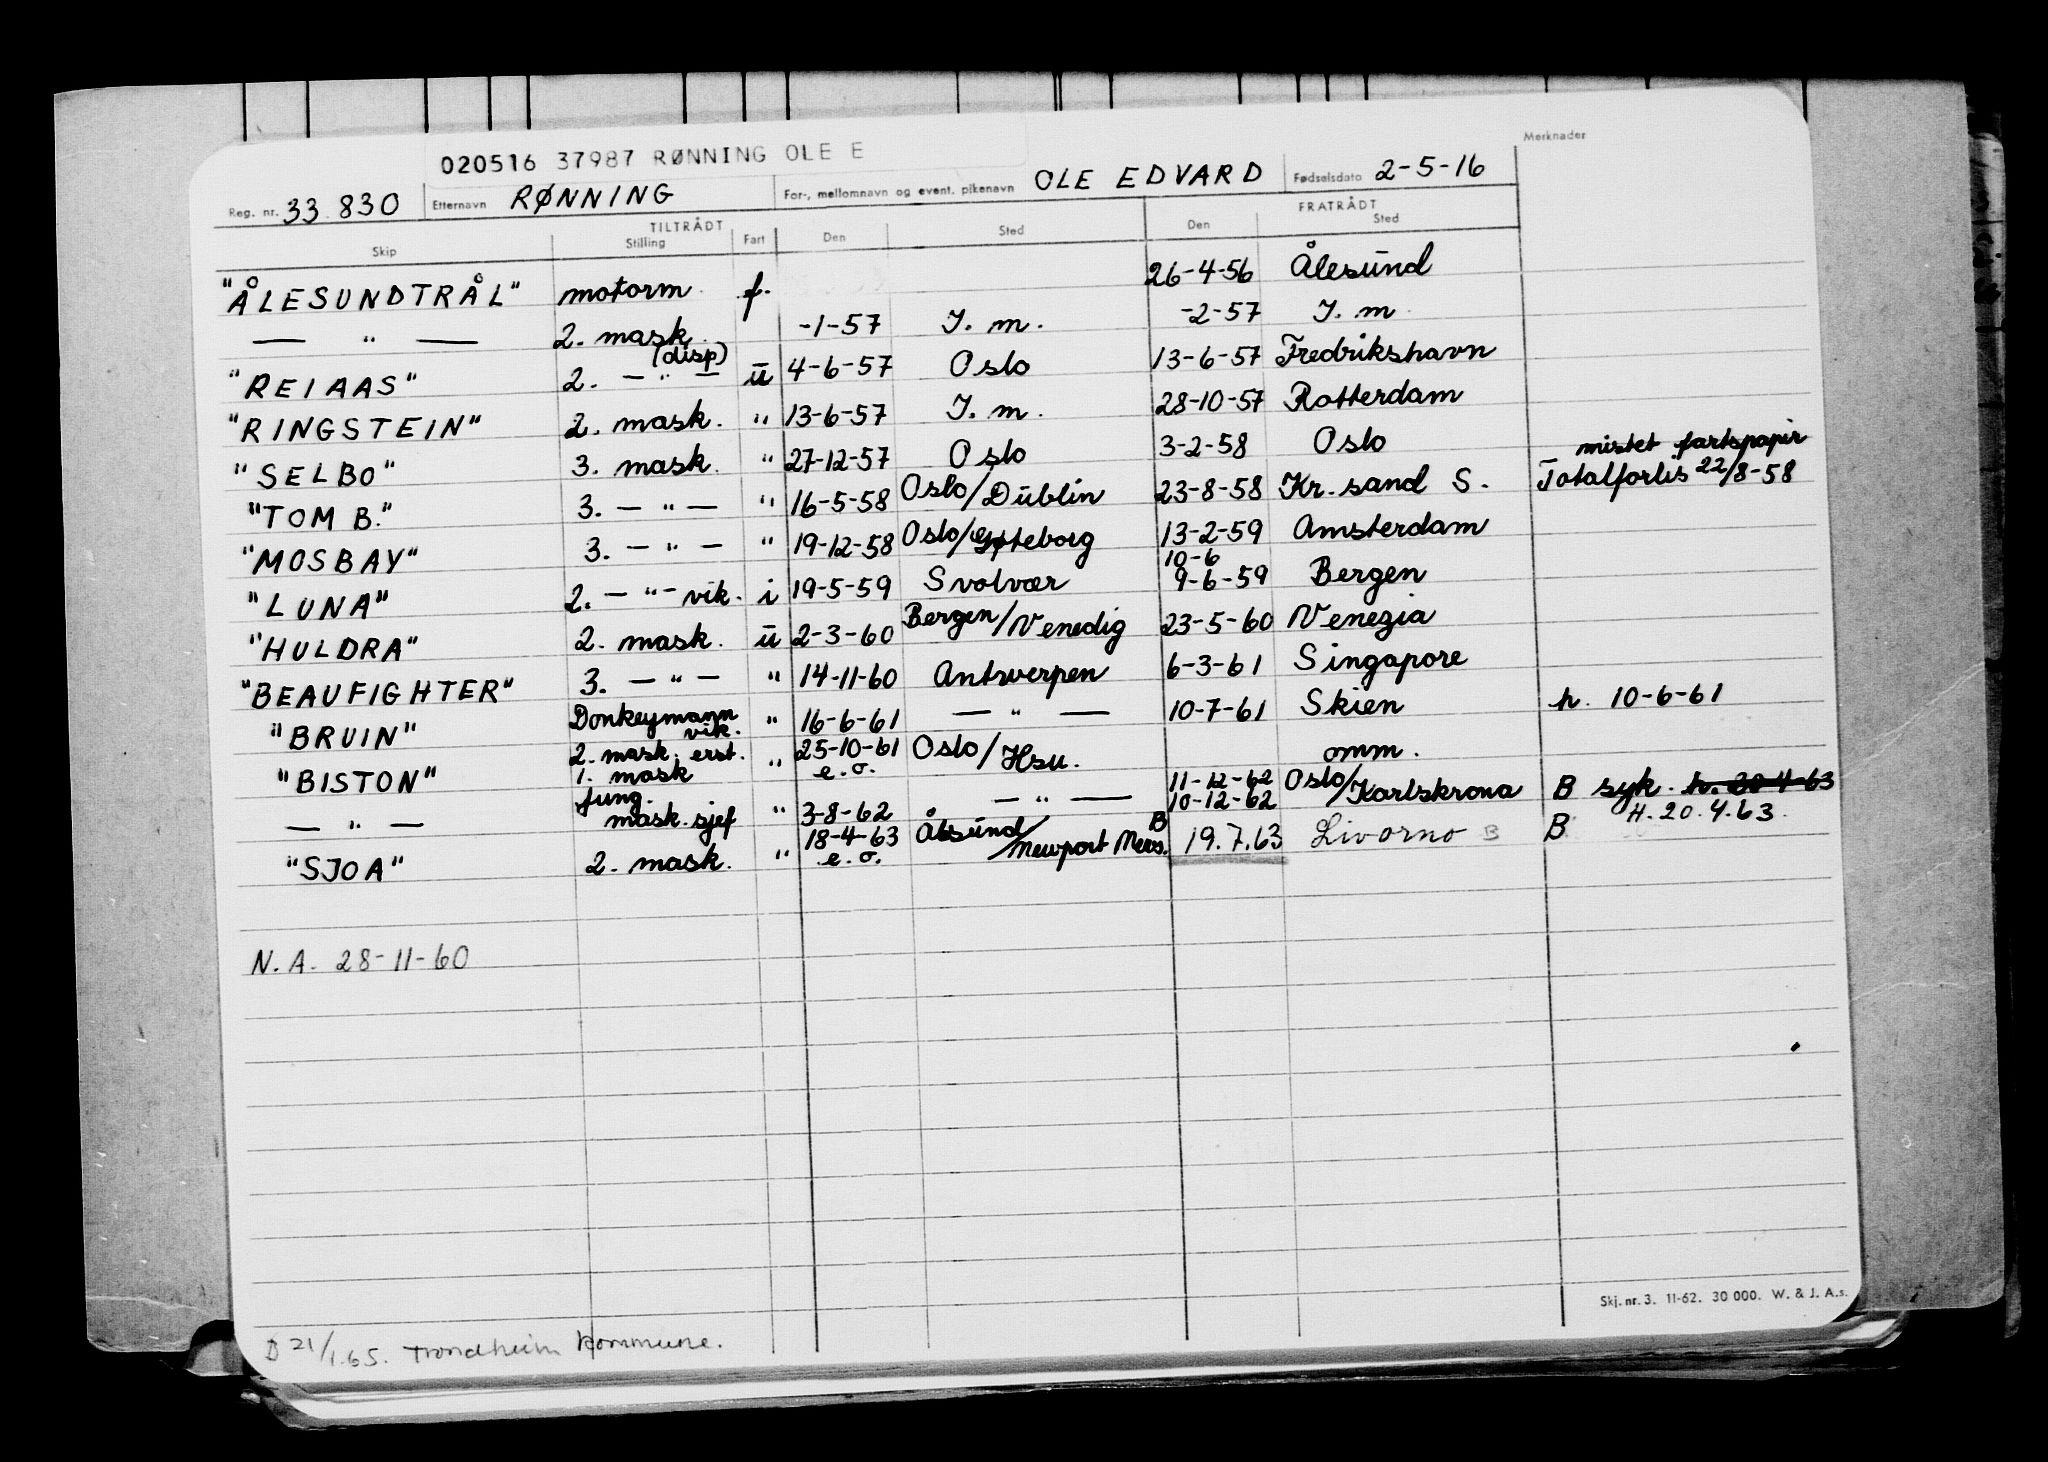 020516 37987 RØNNING OLE E
Merknader
Reg. nr. 33 830 Etternavn RØNNING For-, mellomnavn og event. pikenavn OLE EDVARD Fødselsdato 2-5-16
TILTRÅDT FRATRÅDT
Skip Stilling Fart Den Sted Den Sted
"ÅLESUNDTRÅL" motorm. f. 26-4-56 Ålesund
— " — 2. mask. -1-57 I. m. -2-57 I. m
"REIAAS" 2. — " — (disp) u 4-6-57 Oslo 13-6-57 Fredrikshavn
"RINGSTEIN" 2. mask. " 13-6-57 I. m. 28-10-57 Rotterdam
"SELBO" 3. mask. " 27-12-57 Oslo 3-2-58 Oslo
mistet fartspapir
"TOM B." 3. — " — " 16-5-58 Oslo/Dublin 23-8-58 Kr. sand S. Totalforlis 22/8-58
"MOSBAY" 3. — " — " 19-12-58 Oslo/Gøteborg 13-2-59 Amsterdam
10-6
"LUNA" 2. — " — vik. i 19-5-59 Svolvær 9-6-59 Bergen
"HULDRA" 2. mask. u 2-3-60 Bergen/Venedig 23-5-60 Venezia
"BEAUFIGHTER" 3. — " — " 14-11-60 Antwerpen 6-3-61 Singapore
"BRUIN" Donkeymann vik. " 16-6-61 — " — 10-7-61 Skien h. 10-6-61
2. mask. erst. 25-10-61
"BISTON" 1. mask " e.o. Oslo/Hsu. omm.
fung. 11-12-62
— " — mask. sjef " 3-8-62 — " — 10-12-62 Oslo/Karlskrona B syk. h. 20-4-63
H. 20.4.63.
18-4-63 B
"SJOA" 2. mask. " e.o. Ålesund/Newport News. 19.7.63 Livorno B B
N.A. 28-11-60
Skj. nr. 3. 11-62. 30 000. W. & J. A.s.
D 21/1.65. Trondheim kommune.